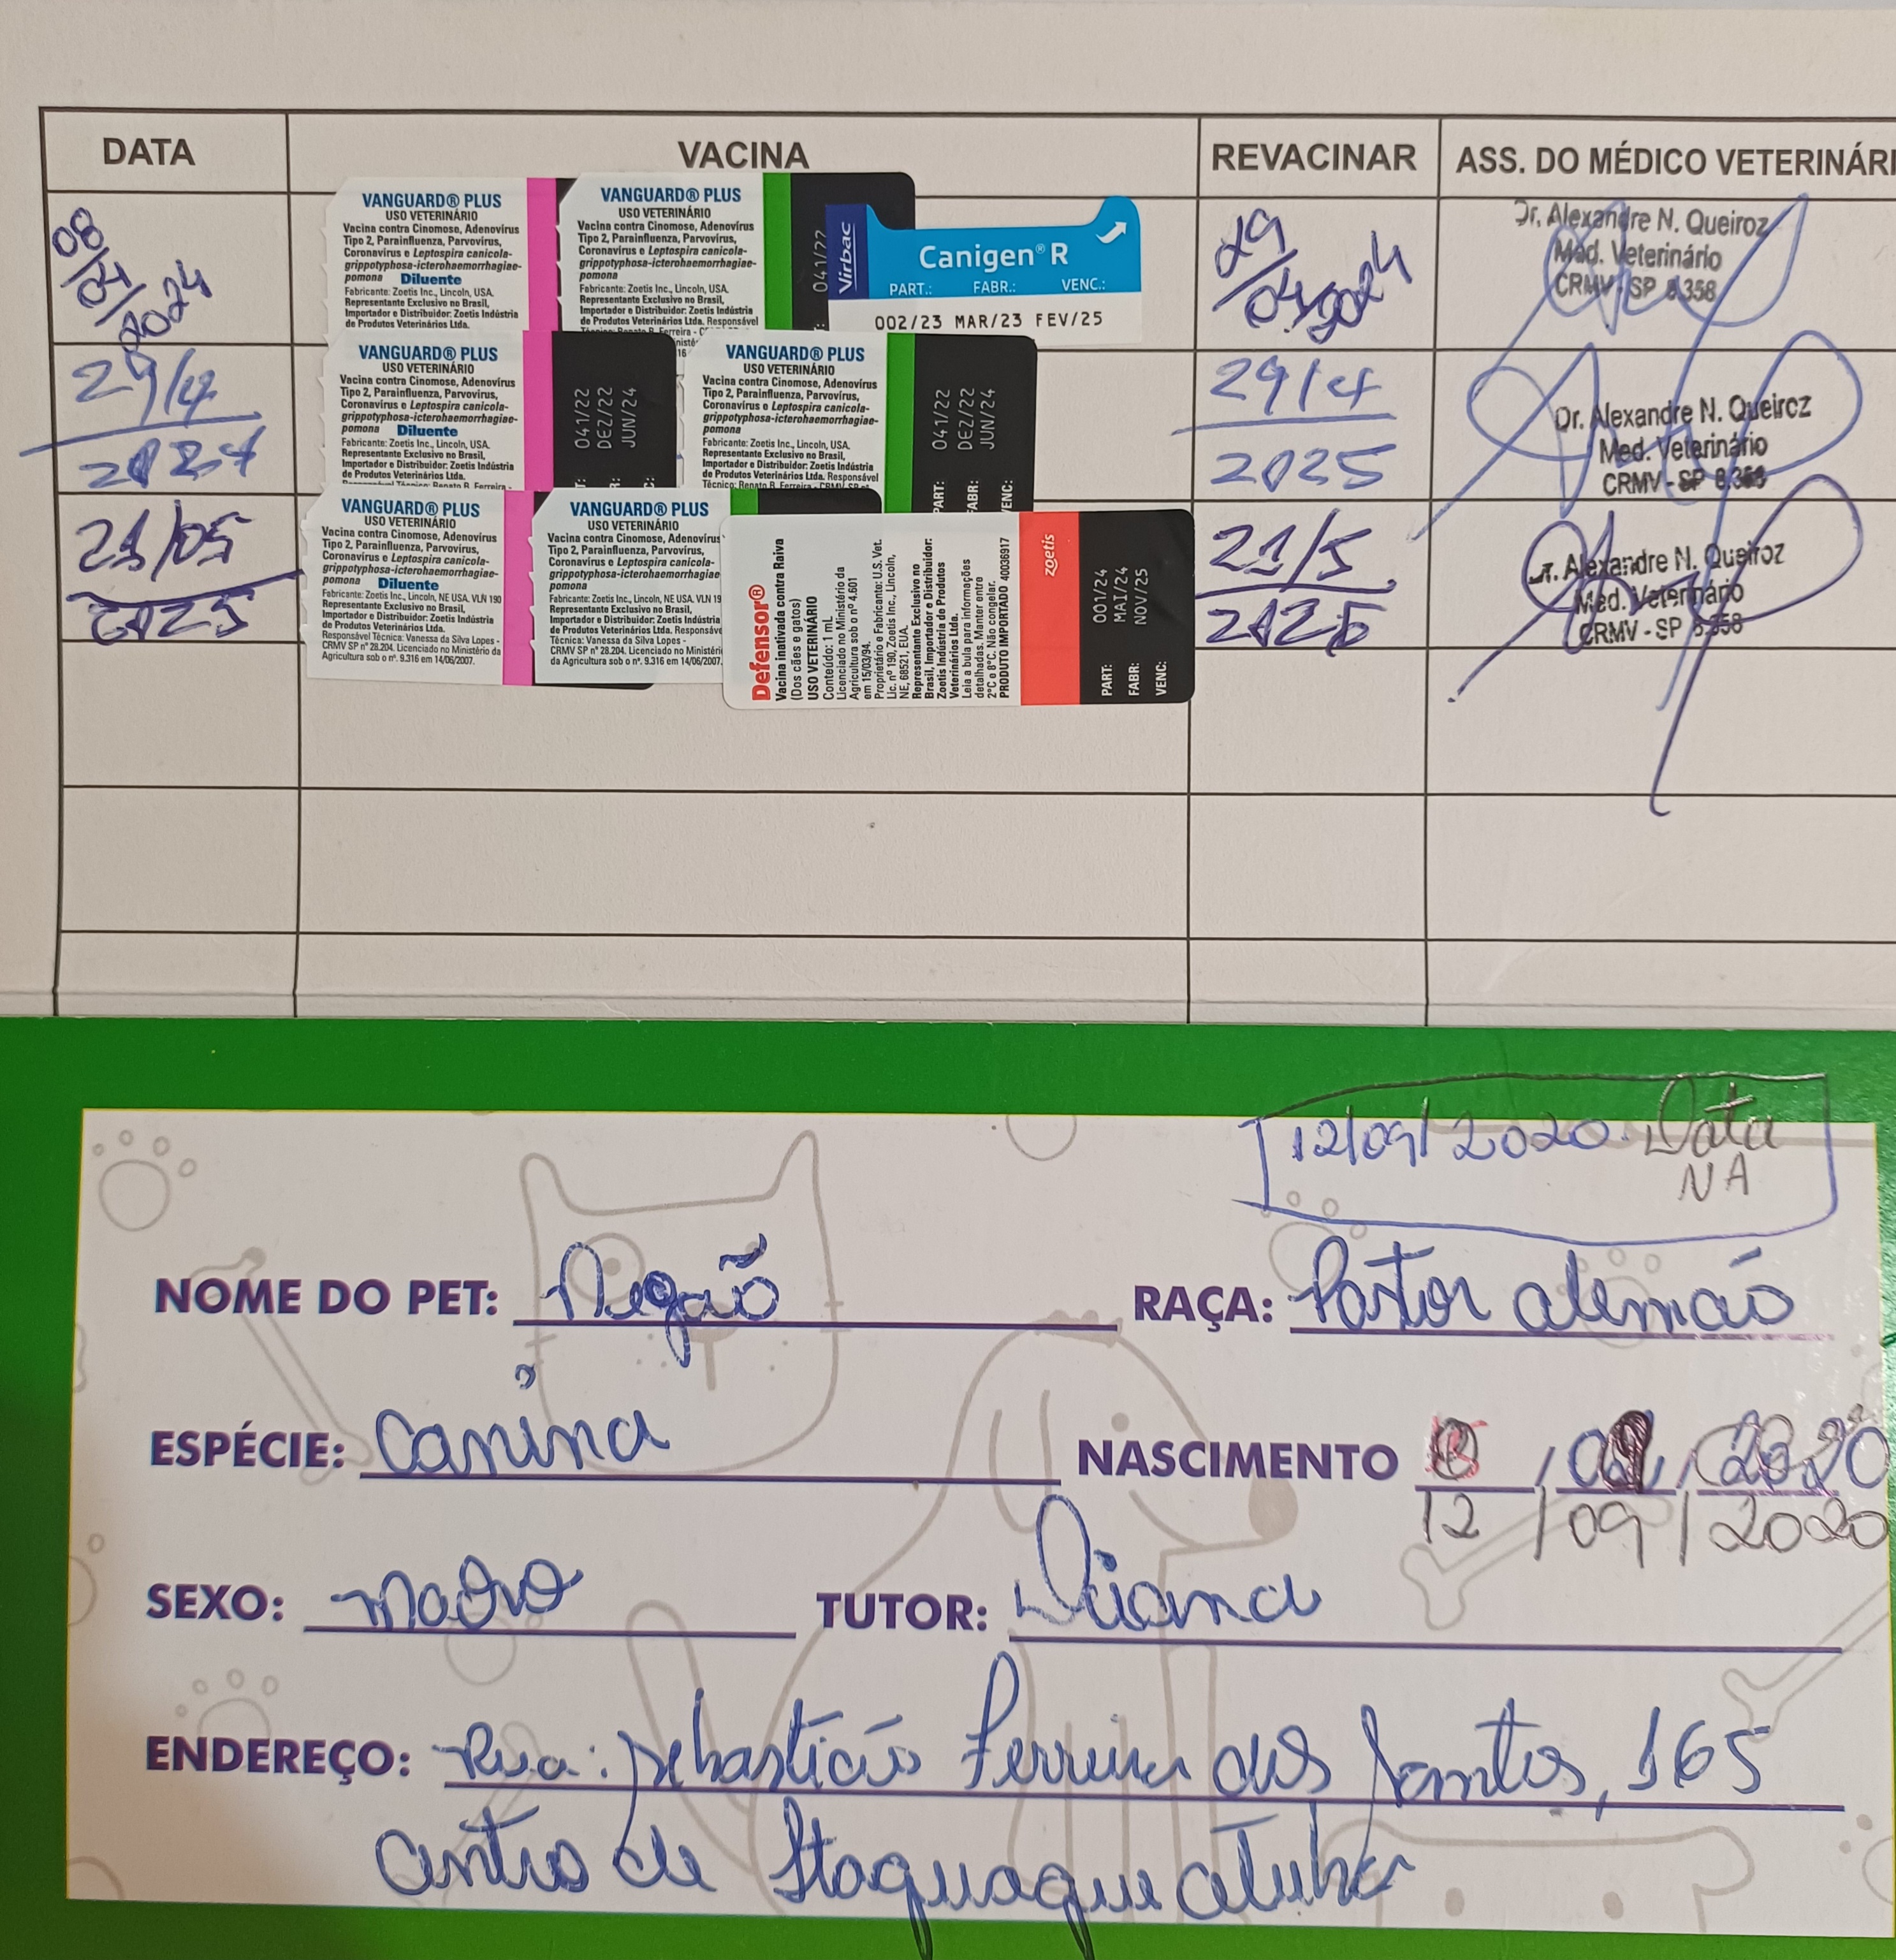 DATA VACINA REVACINAR ASS. DO MÉDICO VETERINÁRI
08/04/2024
VANGUARD® PLUS
USO VETERINÁRIO
Vacina contra Cinomose, Adenovírus
Tipo 2, Parainfluenza, Parvovírus,
Coronavírus e Leptospira canicola-
grippotyphosa-icterohaemorrhagiae-
pomona Diluente
Fabricante: Zoetis Inc., Lincoln, USA.
Representante Exclusivo no Brasil,
Importador e Distribuidor: Zoetis Indústria
de Produtos Veterinários Ltda.
VANGUARD® PLUS
USO VETERINÁRIO
Vacina contra Cinomose, Adenovírus
Tipo 2, Parainfluenza, Parvovírus,
Coronavírus e Leptospira canicola-
grippotyphosa-icterohaemorrhagiae-
pomona
Fabricante: Zoetis Inc., Lincoln, USA.
Representante Exclusivo no Brasil,
Importador e Distribuidor: Zoetis Indústria
de Produtos Veterinários Ltda. Responsável
041/22
Virbac
Canigen® R
PART.: FABR.: VENC.:
002/23 MAR/23 FEV/25
29/04/2024
Dr. Alexandre N. Queiroz
Med. Veterinário
CRMV - SP 8.358
29/4
2024
VANGUARD® PLUS
USO VETERINÁRIO
Vacina contra Cinomose, Adenovírus
Tipo 2, Parainfluenza, Parvovírus,
Coronavírus e Leptospira canicola-
grippotyphosa-icterohaemorrhagiae-
pomona Diluente
Fabricante: Zoetis Inc., Lincoln, USA.
Representante Exclusivo no Brasil,
Importador e Distribuidor: Zoetis Indústria
de Produtos Veterinários Ltda.
041/22
DEZ/22
JUN/24
VANGUARD® PLUS
USO VETERINÁRIO
Vacina contra Cinomose, Adenovírus
Tipo 2, Parainfluenza, Parvovírus,
Coronavírus e Leptospira canicola-
grippotyphosa-icterohaemorrhagiae-
pomona
Fabricante: Zoetis Inc., Lincoln, USA.
Representante Exclusivo no Brasil,
Importador e Distribuidor: Zoetis Indústria
de Produtos Veterinários Ltda. Responsável
Técnico: Renato B. Ferreira - CRMV SP
PART: 041/22
FABR: DEZ/22
VENC: JUN/24
29/4
2025
Dr. Alexandre N. Queiroz
Med. Veterinário
CRMV - SP 8.358
21/05
2025
VANGUARD® PLUS
USO VETERINÁRIO
Vacina contra Cinomose, Adenovírus
Tipo 2, Parainfluenza, Parvovírus,
Coronavírus e Leptospira canicola-
grippotyphosa-icterohaemorrhagiae-
pomona Diluente
Fabricante: Zoetis Inc., Lincoln, NE USA. VLN 190
Representante Exclusivo no Brasil,
Importador e Distribuidor: Zoetis Indústria
de Produtos Veterinários Ltda.
Responsável Técnica: Vanessa da Silva Lopes -
CRMV SP nº 28.204. Licenciado no Ministério da
Agricultura sob o nº. 9.316 em 14/06/2007.
VANGUARD® PLUS
USO VETERINÁRIO
Vacina contra Cinomose, Adenovírus
Tipo 2, Parainfluenza, Parvovírus,
Coronavírus e Leptospira canicola-
grippotyphosa-icterohaemorrhagiae
pomona
Fabricante: Zoetis Inc., Lincoln, NE USA. VLN 19
Representante Exclusivo no Brasil,
Importador e Distribuidor: Zoetis Indústria
de Produtos Veterinários Ltda. Responsáve
Técnica: Vanessa da Silva Lopes -
CRMV SP nº 28.204. Licenciado no Ministéri
da Agricultura sob o nº. 9.316 em 14/06/2007.
Defensor®
Vacina inativada contra Raiva
(Dos cães e gatos)
USO VETERINÁRIO
Conteúdo: 1 mL
Licenciado no Ministério da
Agricultura sob o nº 4.601
em 15/03/94.
Proprietário e Fabricante: U.S. Vet.
Lic. nº 190, Zoetis Inc., Lincoln,
NE, 68521, EUA.
Representante Exclusivo no
Brasil, Importador e Distribuidor:
Zoetis Indústria de Produtos
Veterinários Ltda.
Leia a bula para informações
detalhadas. Manter entre
2°C e 8°C. Não congelar.
PRODUTO IMPORTADO 40036917
zoetis
PART: 001/24
FABR: MAI/24
VENC: NOV/25
21/5
2026
Dr. Alexandre N. Queiroz
Med. Veterinário
CRMV - SP 8.358
12/09/2020. Data
NA
NOME DO PET: Negão RAÇA: Pastor alemão
ESPÉCIE: Canina NASCIMENTO
12/09/2020
SEXO: Macho TUTOR: Diana
ENDEREÇO: Rua: Sebastião Ferreira dos Santos, 165
Centro de Itaquaquecetuba